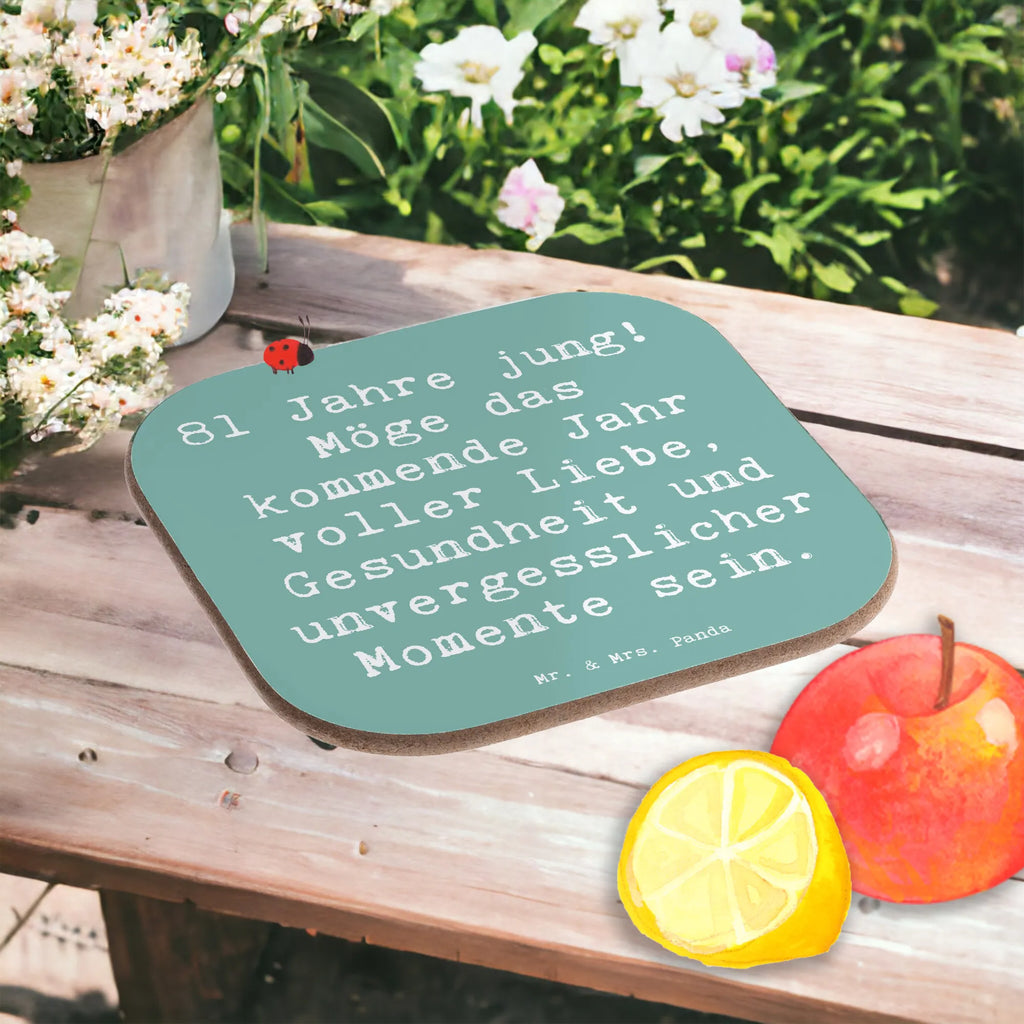 81 Jahre jung!
Möge das
kommende Jahr
voller Liebe,
Gesundheit und
unvergesslicher
Momente sein.
Mr. & Mrs. Panda